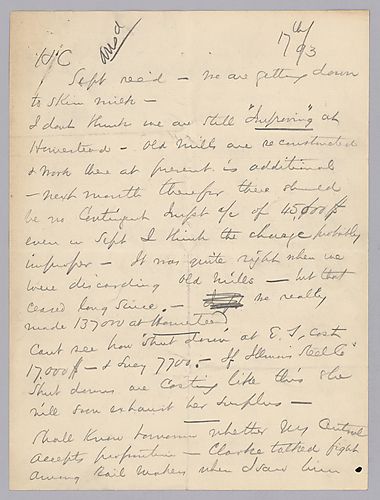 17th/93
HC ansd
Sept recd — We are getting down
to skim milk —
I dont think we are still "Improving" at
Homestead — Old Mills are reconstructed
& work there at present is additional
— next month therefor there should
be no Contingent Impt a/c of 45,000$
even in Sept I think the charge probably
improper — It was quite right when we
were discarding Old Mills — but that
ceased long since — we really
made 137000 at Homestead
Cant see how Shut down at E.T. cost
17,000$ — & Lucy 7700 — If Illinois Steel Co
Shut downs are costing like this she
will soon exhaust her surplus —
Shall Know tomorrow whether Ny Central
accepts proposition — Clarke talked fight
among Rail Makers when I saw him